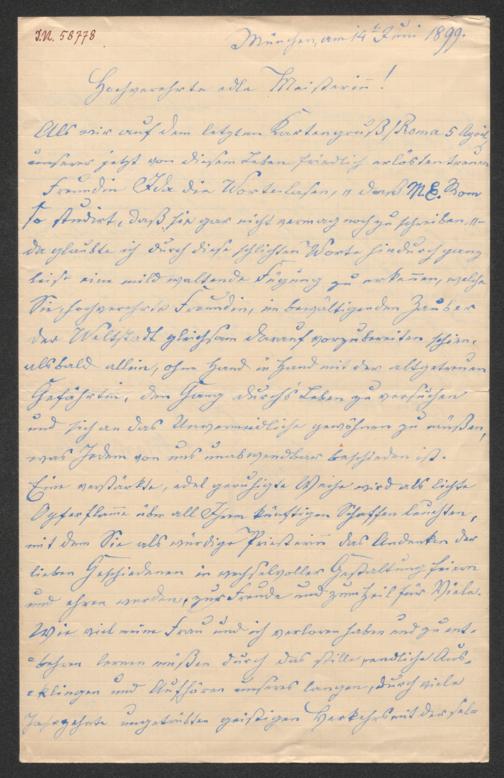 J.N. 58778
München, am 14t Juni 1899.
Hochverehrte edle Meisterin!
Als wir auf dem letzten Kartengruß /Roma 5 April/
unserer jetzt von diesem Leben friedlich erlösten treuen
Freundin Ida die Worte lasen, „ daß M.E. Rom
so studirt, daß sie gar nicht vermag noch zu schreiben, „-
da glaubte ich durch diese schlichten Worte hindurch ganz
leise eine mild waltende Fügung zu erkennen, welche
Sie, hochverehrte Freundin, im bewältigenden Zauber
der Weltstadt gleichsam darauf vorzubereiten schien,
alsbald allein, ohne Hand in Hand mit der altgetreuen
Gefährtin, den Gang durch's Leben zu versuchen
und sich an das Unvermeidliche gewöhnen zu müßen,
was Jedem von uns unabwendbar beschieden ist.
Eine verstärkte, edel geruhigte Weihe wird als lichte
Opferflamme über all Ihrem künftigen Schaffen leuchten,
mit dem Sie als würdige Priesterin das Andenken der
lieben Geschiedenen in wechselvoller Gestaltung feiern
und ehren werden, zur Freude und zum Heil für Viele.
Wie viel meine Frau und ich verloren haben und zu ent-
behren lernen müßen durch das stille, endliche Aus-
klingen und Aufhören unseres langen, durch viele
Jahrzehnte ungetrübten geistigen Verkehrs mit der sel-